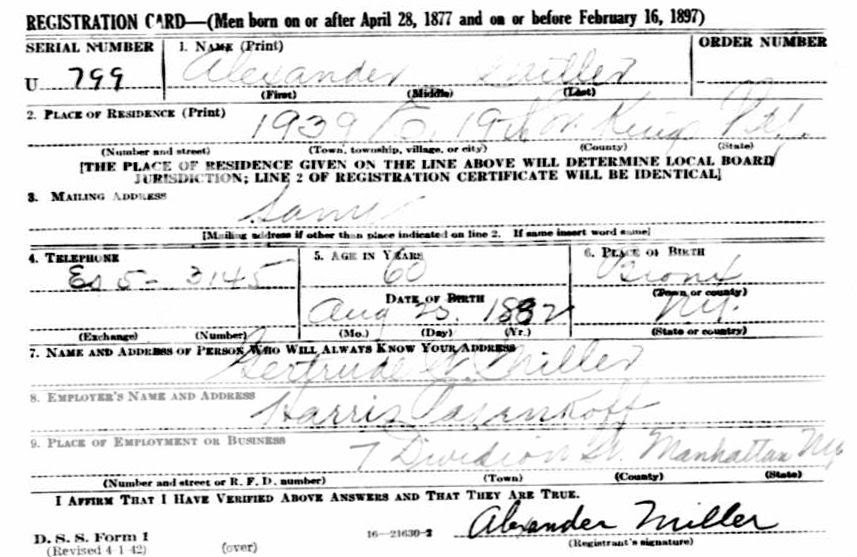 REGISTRATION CARD—(Men born on or after April 28, 1877 and on or before February 16, 1897)
SERIAL NUMBER 1. NAME (Print) ORDER NUMBER
U 799 Alexander Miller
(First) (Middle) (Last)
2. PLACE OF RESIDENCE (Print)
1939 E. 19th Kings
(Number and street) (Town, township, village, or city) (County) (State)
[THE PLACE OF RESIDENCE GIVEN ON THE LINE ABOVE WILL DETERMINE LOCAL BOARD
JURISDICTION; LINE 2 OF REGISTRATION CERTIFICATE WILL BE IDENTICAL]
3. MAILING ADDRESS
Same
[Mailing address if other than place indicated on line 2. If same insert word same]
4. TELEPHONE 5. AGE IN YEARS 6. PLACE OF BIRTH
Es 5- 3145 60 Bronx
DATE OF BIRTH (Town or county)
Aug 25. 1882 N.Y.
(Exchange) (Number) (Mo.) (Day) (Yr.) (State or country)
7. NAME AND ADDRESS OF PERSON WHO WILL ALWAYS KNOW YOUR ADDRESS
Gertrude Miller
8. EMPLOYER'S NAME AND ADDRESS
Harris
9. PLACE OF EMPLOYMENT OR BUSINESS
7 Division St. Manhattan NY
(Number and street or R. F. D. number) (Town) (County) (State)
I AFFIRM THAT I HAVE VERIFIED ABOVE ANSWERS AND THAT THEY ARE TRUE.
Alexander Miller
D. S. S. Form 1 16—21630-2 (Registrant's signature)
(Revised 4-1-42) (over)